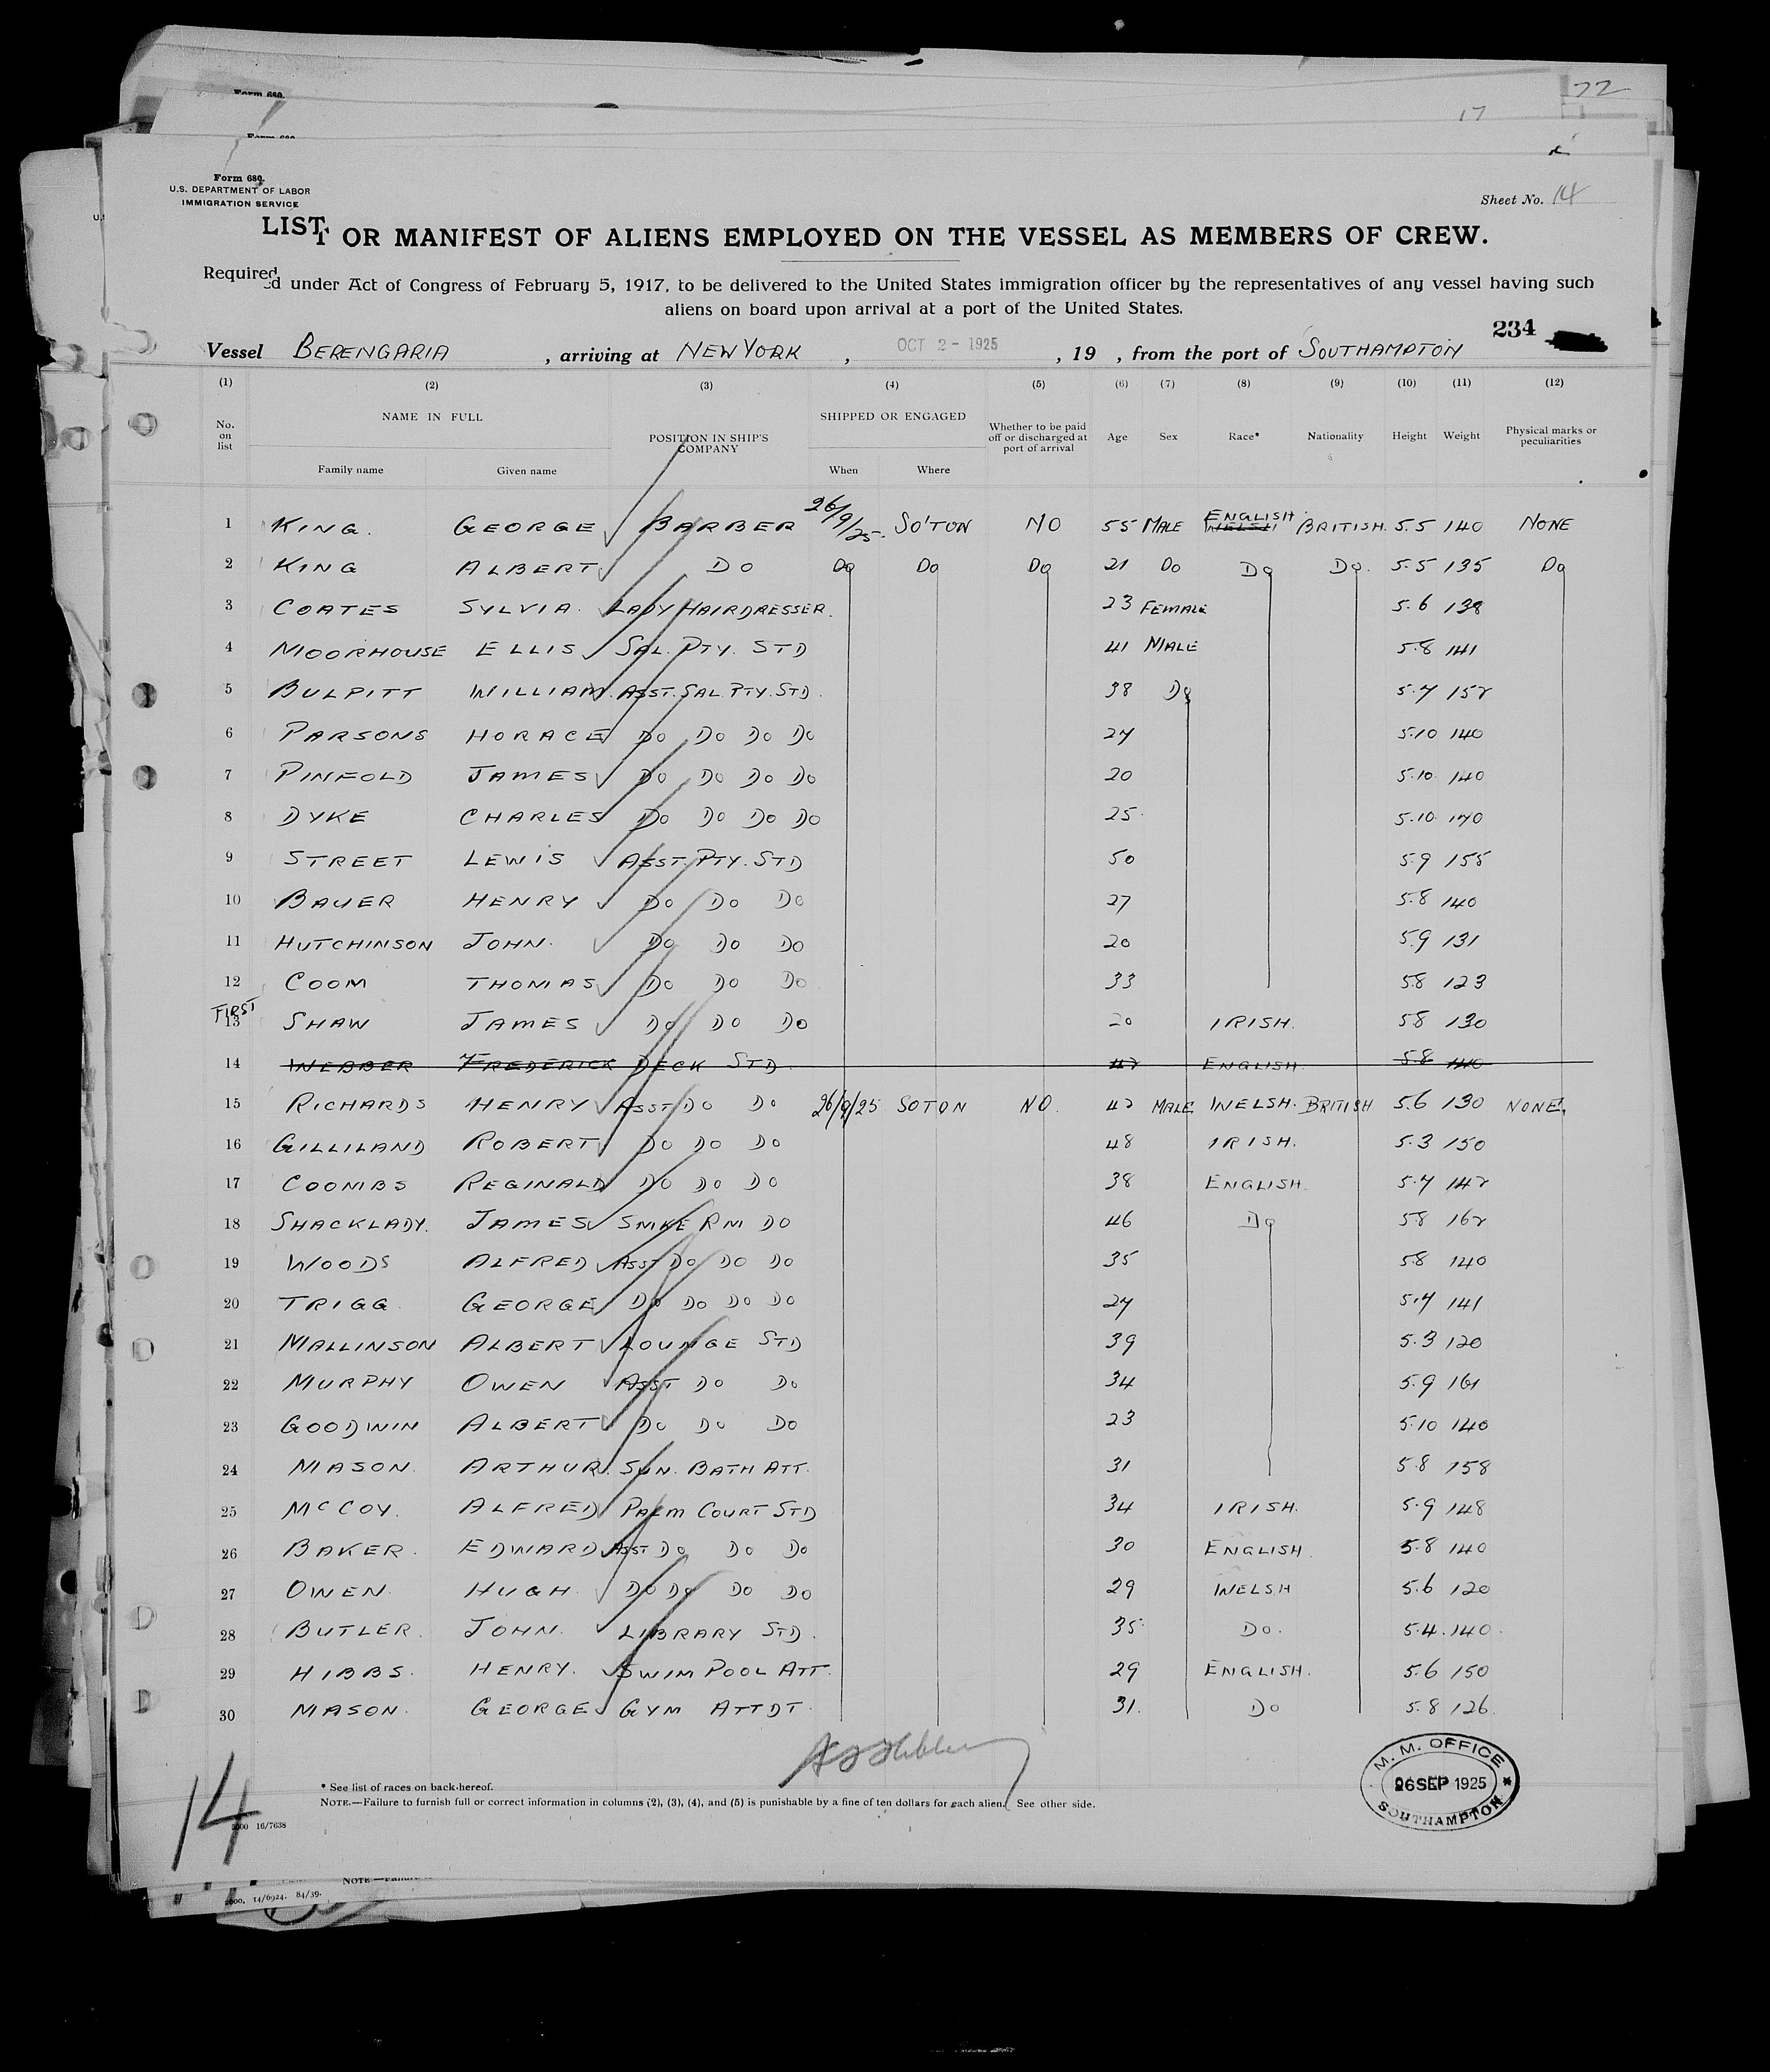 72
17
Form 680.
Form 680.
Form 680.
U.S. DEPARTMENT OF LABOR
IMMIGRATION SERVICE
Sheet No. 14
LIST OR MANIFEST OF ALIENS EMPLOYED ON THE VESSEL AS MEMBERS OF CREW.
Required under Act of Congress of February 5, 1917, to be delivered to the United States immigration officer by the representatives of any vessel having such
aliens on board upon arrival at a port of the United States.
234
Vessel BERENGARIA, arriving at NEW YORK, OCT 2 - 1925, 19 , from the port of SOUTHAMPTON
(1) (2) (3) (4) (5) (6) (7) (8) (9) (10) (11) (12)
No. on list NAME IN FULL Family name Given name POSITION IN SHIP'S COMPANY SHIPPED OR ENGAGED When Where Whether to be paid off or discharged at port of arrival Age Sex Race* Nationality Height Weight Physical marks or peculiarities
1 KING. GEORGE BARBER 26/9/25. SO'TON NO 55 MALE ENGLISH. WELSH BRITISH. 5.5 140 NONE
2 KING ALBERT DO Do Do Do 21 Do Do Do. 5.5 135 Do
3 COATES SYLVIA. LADY HAIRDRESSER. 23 FEMALE 5.6 138
4 MOORHOUSE ELLIS SAL. PTY. STD 41 MALE 5.8 141
5 BULPITT WILLIAM. ASST. SAL. PTY. STD. 38 Do 5.7 152
6 PARSONS HORACE Do Do Do Do 27 5.10 140
7 PINFOLD JAMES Do Do Do Do 20 5.10. 140
8 DYKE CHARLES Do Do Do Do 25. 5.10. 170
9 STREET LEWIS ASST. PTY. STD 50 5.9 155
10 BAUER HENRY Do Do Do 27 5.8 140
11 HUTCHINSON JOHN. Do Do Do 20 5.9 131
12 COOM THOMAS Do Do Do. 33 5.8 123
FIRST
13 SHAW JAMES Do Do Do 20 IRISH. 5.8 130
14 WEBBER FREDERICK DECK STD. 47 ENGLISH. 5.8 140
15 RICHARDS HENRY ASST Do Do 26/9/25 SOTON NO. 42 MALE WELSH. BRITISH 5.6 130 NONE.
16 GILLILAND ROBERT Do Do Do 48 IRISH. 5.3 150
17 COOMBS REGINALD Do Do Do 38 ENGLISH. 5.7 142
18 SHACKLADY. JAMES SMKE RM DO 46 Do 5.8 162
19 WOODS ALFRED ASST Do Do Do 35 5.8 140
20 TRIGG GEORGE Do Do Do Do 27 5.7 141
21 MALLINSON ALBERT LOUNGE STD 39 5.3 120
22 MURPHY OWEN ASST Do Do 34 5.9 161
23 GOODWIN ALBERT Do Do Do 23 5.10 140
24 MASON. ARTHUR. SUN. BATH ATT. 31 5.8 158
25 McCOY. ALFRED PALM COURT STD 34 IRISH. 5.9 148
26 BAKER. EDWARD ASST Do Do Do 30 ENGLISH. 5.8 140
27 OWEN. HUGH. Do Do Do Do 29 WELSH 5.6 120
28 BUTLER. JOHN. LIBRARY STD. 35. Do. 5.4. 140.
29 HIBBS. HENRY. SWIM POOL ATT. 29 ENGLISH. 5.6 150
30 MASON. GEORGE GYM ATTDT. 31. Do 5.8 126.
M. M. OFFICE
26 SEP 1925
SOUTHAMPTON
* See list of races on back hereof.
NOTE.—Failure to furnish full or correct information in columns (2), (3), (4), and (5) is punishable by a fine of ten dollars for each alien. See other side.
14
5000 16/7638
14/6924. 84/39.